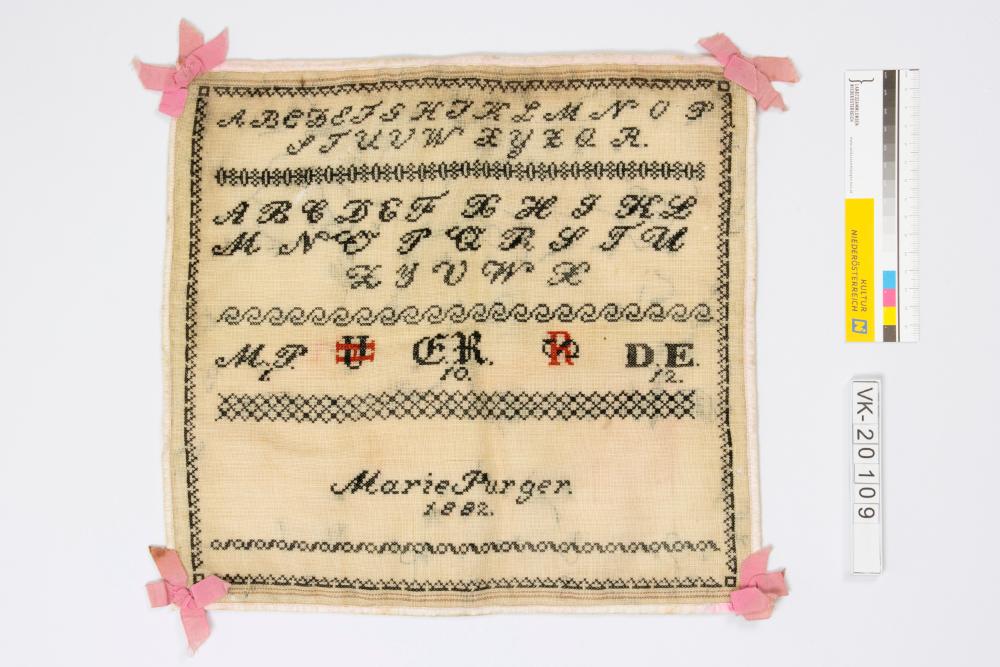 A B C D E F G H I K L M N O P
S T U V W X Y Z Q R.
A B C D E F G H I K L
M N O P Q R S T U
Z Y V W X
M. P. E R. D. E.
1. 10. 12.
Marie Purger.
1882.
LANDESSAMMLUNGEN
NIEDERÖSTERREICH
KULTUR
NIEDERÖSTERREICH
VK-20109